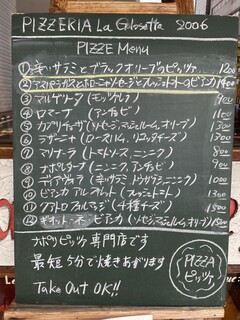 PIZZERIA La Gbssetta 2006
PIZZE Menu
① 辛いサラミとブラックオリーブのピッツァ 1200
② アスパラガスとボローニャソーセージとフレッシュトマトのビアンカ 1400
③ マルゲリータ (モッツァレラ) 900
④ ロマーナ (アンチョビ) 1100
⑤ カプリチョーザ (ソーセージ、マッシュルーム、オリーブ) 1300
⑥ ラザーニャ (ロースハム、リコッタチーズ) 1300
⑦ マリナーラ (トマト、ニンニク) 800
⑧ ナポレターナ (ニンニク、アンチョビ) 900
⑨ ディアヴォラ (辛いサラミ、トウガラシ、ニンニク) 1000
⑩ ビアンカ アル プロシュット
⑪ クアトロフォルマッジ (4種チーズ)
⑫ ビアンカ (ソーセージ、マッシュルーム、オリーブ)
ナポリピッツァ専門店です
最短5分で焼きあがります
Take Out OK!!
PIZZA
ピッツァ